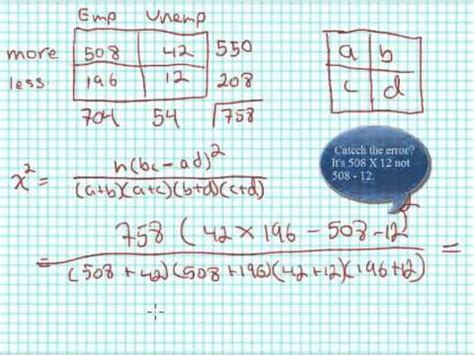 Emp Unemp
more 508 42 550
less 196 12 208
704 54 758
a b
c d
Catcch the error?
It's 508 X 12 not
508 - 12.
x² = n(bc - ad)²
(a+b)(a+c)(b+d)(c+d)
= 758 (42 × 196 - 508 - 12)² =
(508 + 42)(508 + 196)(42 + 12)(196 + 12)